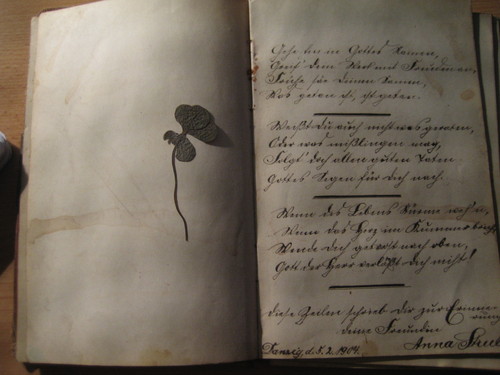 Gehe hin in Gottes Namen,
Greif' dein Werk mit Freuden an,
Frühe säe deinen Samen,
Was getan ist, ist getan.
Weißt Du auch nicht was geraten,
Oder was mißlingen mag,
Folgt doch allen guten Taten
Gottes Segen für dich nach.
Wenn des Lebens Stürme
Wenn das Herz im Kummer
Wende dich getrost nach oben,
Gott der Herr verläßt dich nicht!
Diese Zeilen schrieb Dir zur Erinne-
rung
deine Freundin
Anna
Danzig, d. 8.2.1904.